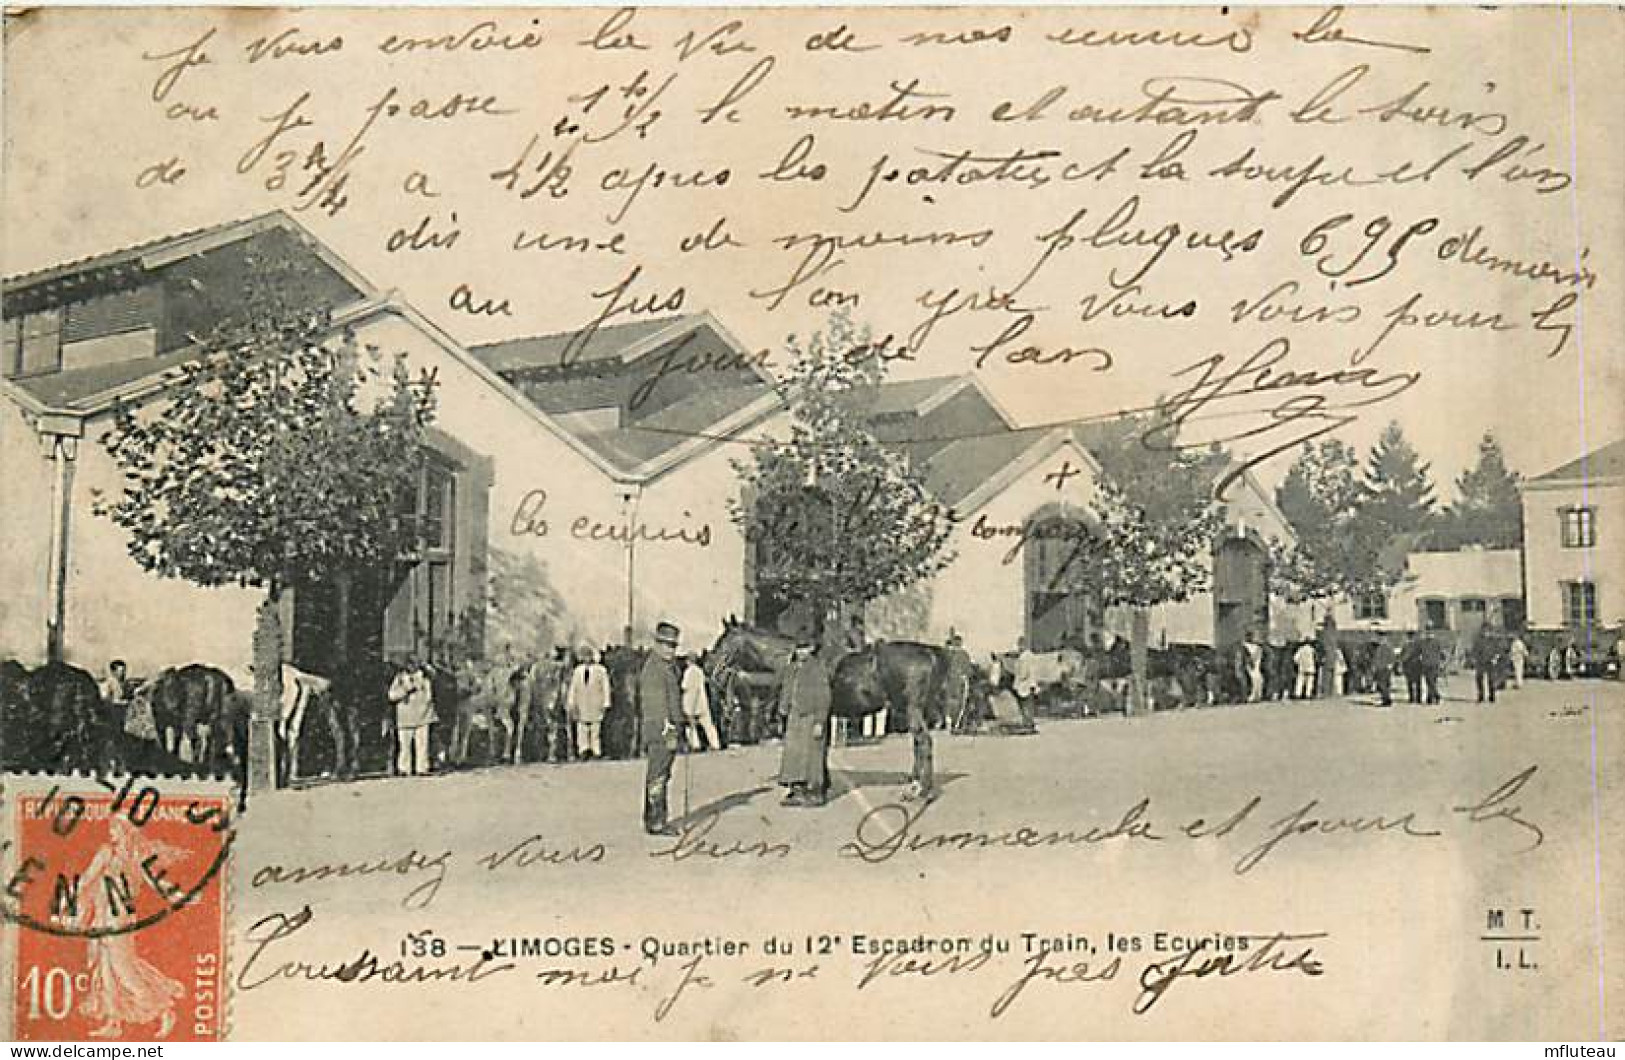 Je vous envoie la vue de nos ecuries la
ou je passe 1 h ½ le matin et autant le soir
de 3 h ¼ a 4 ½ apres les patates et la soupe et l'on
dis une de moins plaques 695 demain
au jus l'on yra vous voir pour le
jour de lan Henri
les ecuries de la 3e compagnie
amusez vous bien Dimanche et pour la
Toussaint moi je ne vais pas sortir
138 — LIMOGES - Quartier du 12e Escadron du Train, les Ecuries
M T.
I. L.
10-10
ENNE
REPUBLIQUE FRANCAISE
10c
POSTES
mfluteau